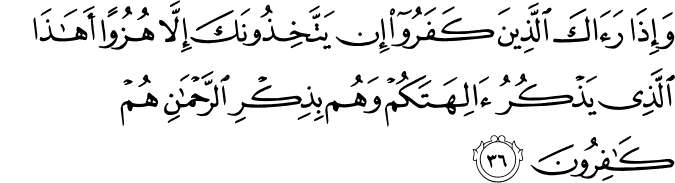 وَإِذَا رَءَاكَ ٱلَّذِينَ كَفَرُوٓا۟ إِن يَتَّخِذُونَكَ إِلَّا هُزُوًا أَهَٰذَا
ٱلَّذِى يَذْكُرُ ءَالِهَتَكُمْ وَهُم بِذِكْرِ ٱلرَّحْمَٰنِ هُمْ
كَٰفِرُونَ ٣٦